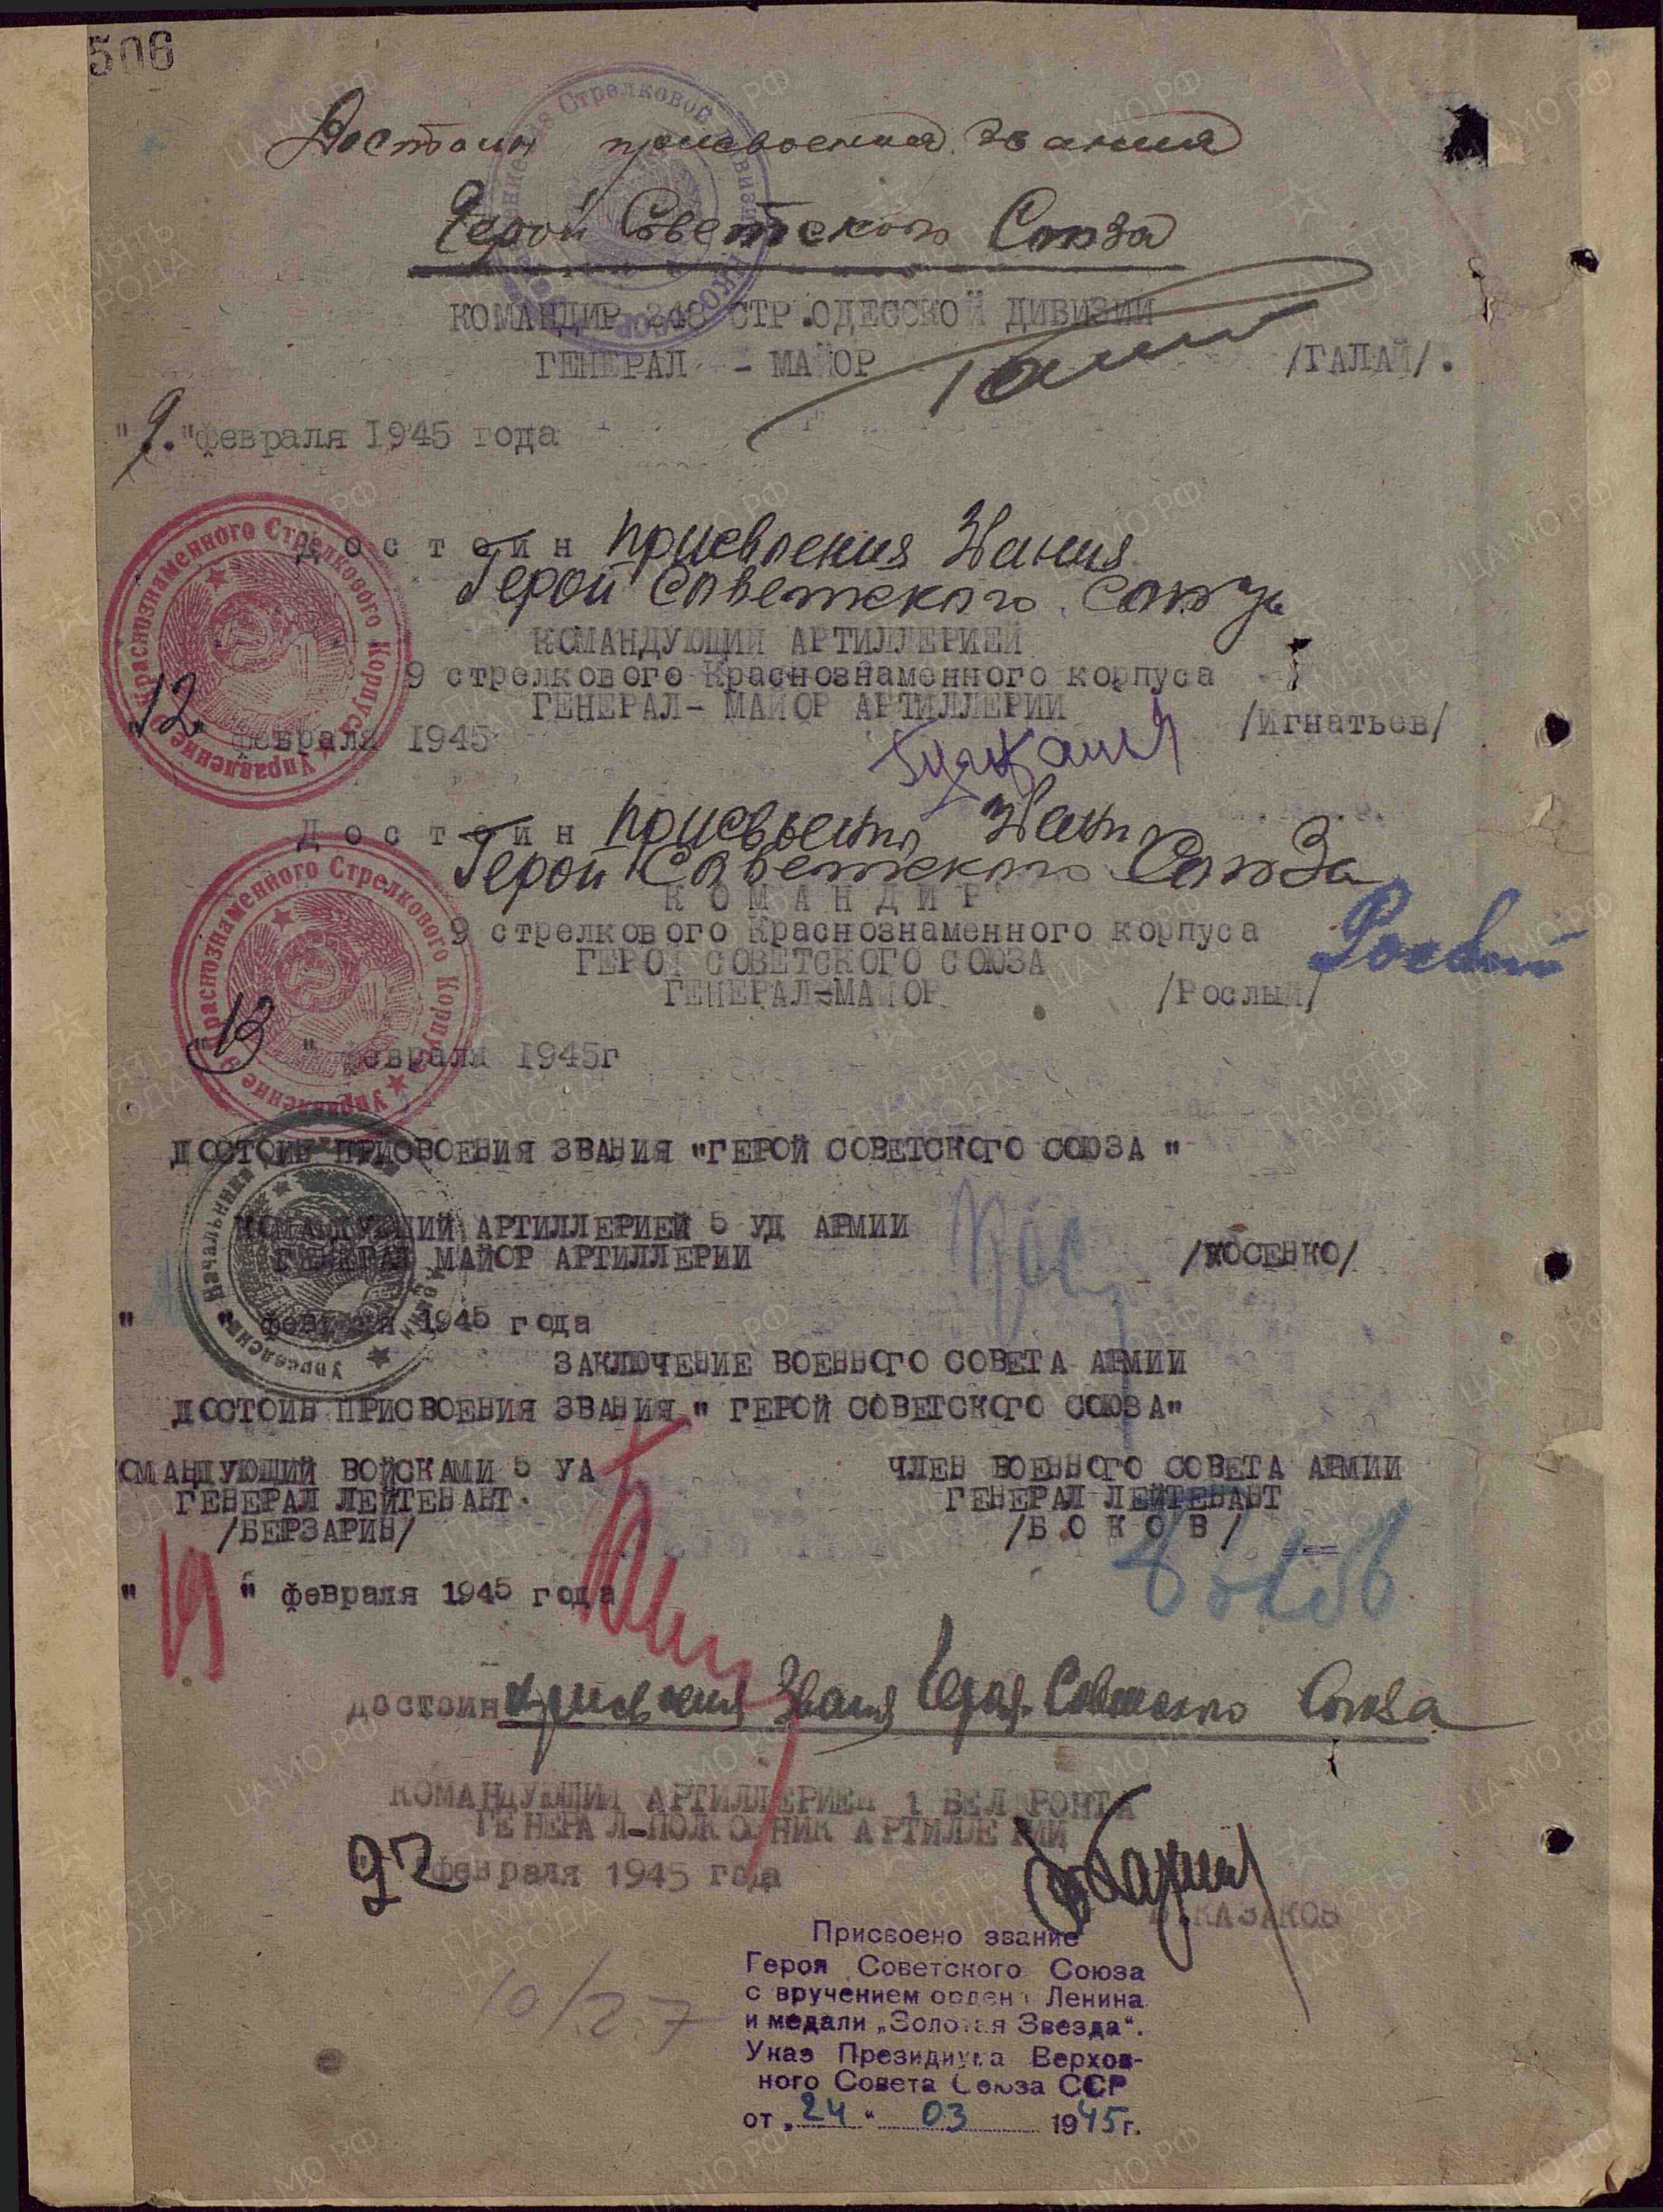 506
Достоин присвоения звания
Герой Советского Союза
КОМАНДИР 248 СТР.ОДЕССКОЙ ДИВИЗИИ
ГЕНЕРАЛ - МАЙОР /ГАЛАЙ/.
"9." февраля 1945 года
Достоин присвоения звания
Герой Советского Союза
КОМАНДУЮЩИЙ АРТИЛЛЕРИЕЙ
9 стрелкового Краснознаменного корпуса
ГЕНЕРАЛ- МАЙОР АРТИЛЛЕРИИ /Игнатьев/
12 февраля 1945
Достоин присвоения звания
Герой Советского Союза
КОМАНДИР
9 стрелкового Краснознаменного корпуса
ГЕРОЙ СОВЕТСКОГО СОЮЗА
ГЕНЕРАЛ-МАЙОР /Рослый/
"13" февраля 1945г
ДОСТОИН ПРИСВОЕНИЯ ЗВАНИЯ "ГЕРОЙ СОВЕТСКОГО СОЮЗА "
КОМАНДУЮЩИЙ АРТИЛЛЕРИЕЙ 5 УД АРМИИ
ГЕНЕРАЛ МАЙОР АРТИЛЛЕРИИ /КОСЕНКО/
" " февраля 1945 года
ЗАКЛЮЧЕНИЕ ВОЕННОГО СОВЕТА АРМИИ
ДОСТОИН ПРИСВОЕНИЯ ЗВАНИЯ " ГЕРОЙ СОВЕТСКОГО СОЮЗА"
ОМАНДУЮЩИЙ ВОЙСКАМИ 5 УА ЧЛЕН ВОЕННОГО СОВЕТА АРМИИ
ГЕНЕРАЛ ЛЕЙТЕНАНТ ГЕНЕРАЛ ЛЕЙТЕНАНТ
/БЕРЗАРИН/ /Б О К О В/
"19" февраля 1945 года
Достоин присвоения звания Героя Советского Союза
КОМАНДУЮЩИЙ АРТИЛЛЕРИЕЙ 1 БЕЛ ФРОНТА
ГЕНЕРАЛ-ПОЛКОВНИК АРТИЛЛЕРИИ
февраля 1945 года
КАЗАКОВ
Присвоено звание
Героя Советского Союза
с вручением ордена Ленина
и медали „Золотая Звезда".
Указ Президиума Верхов-
ного Совета Союза ССР
от „24" 03 1945г.
10/27